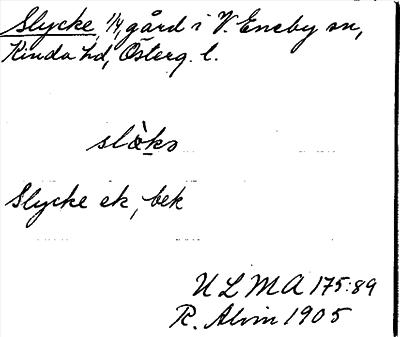 Slycke, 1/4, gård i V. Eneby sn,
Kinda hd, Österg. l.
slæ̀ks
Slycke ek, bek
ULMA 175:89
R. Alvin 1905